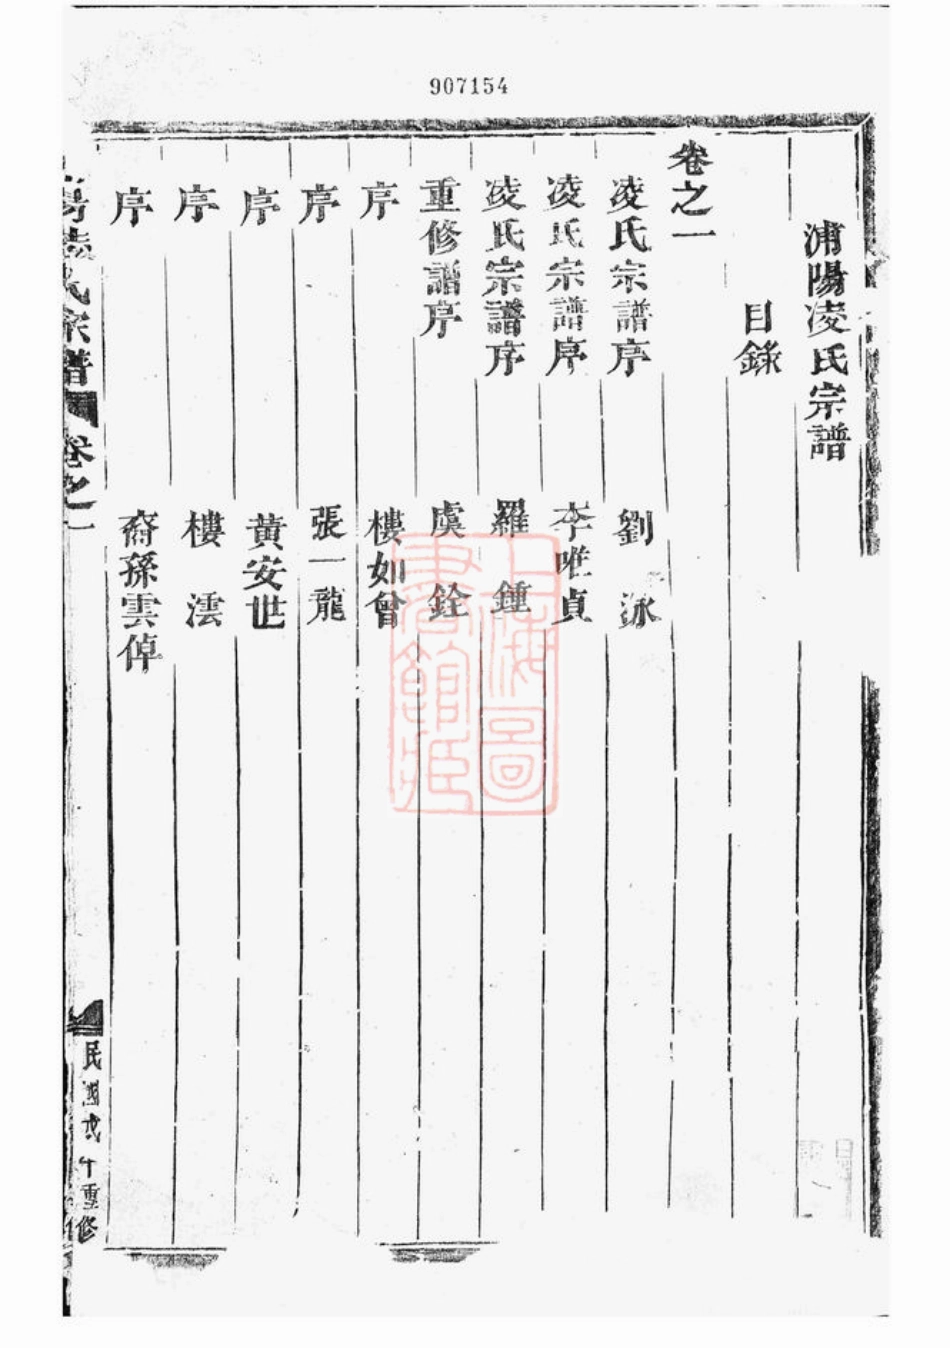 907154
浦陽凌氏宗譜
目錄
卷之一
凌氏宗譜序 劉泳
凌氏宗譜序 李唯貞
凌氏宗譜序 羅鍾
重修譜序 虞銓
序 樓如曾
序 張一龍
序 黃安世
序 樓澐
序 裔孫雲倬
陽凌氏宗譜 卷之一
民國戊午重修
上海圖書館藏